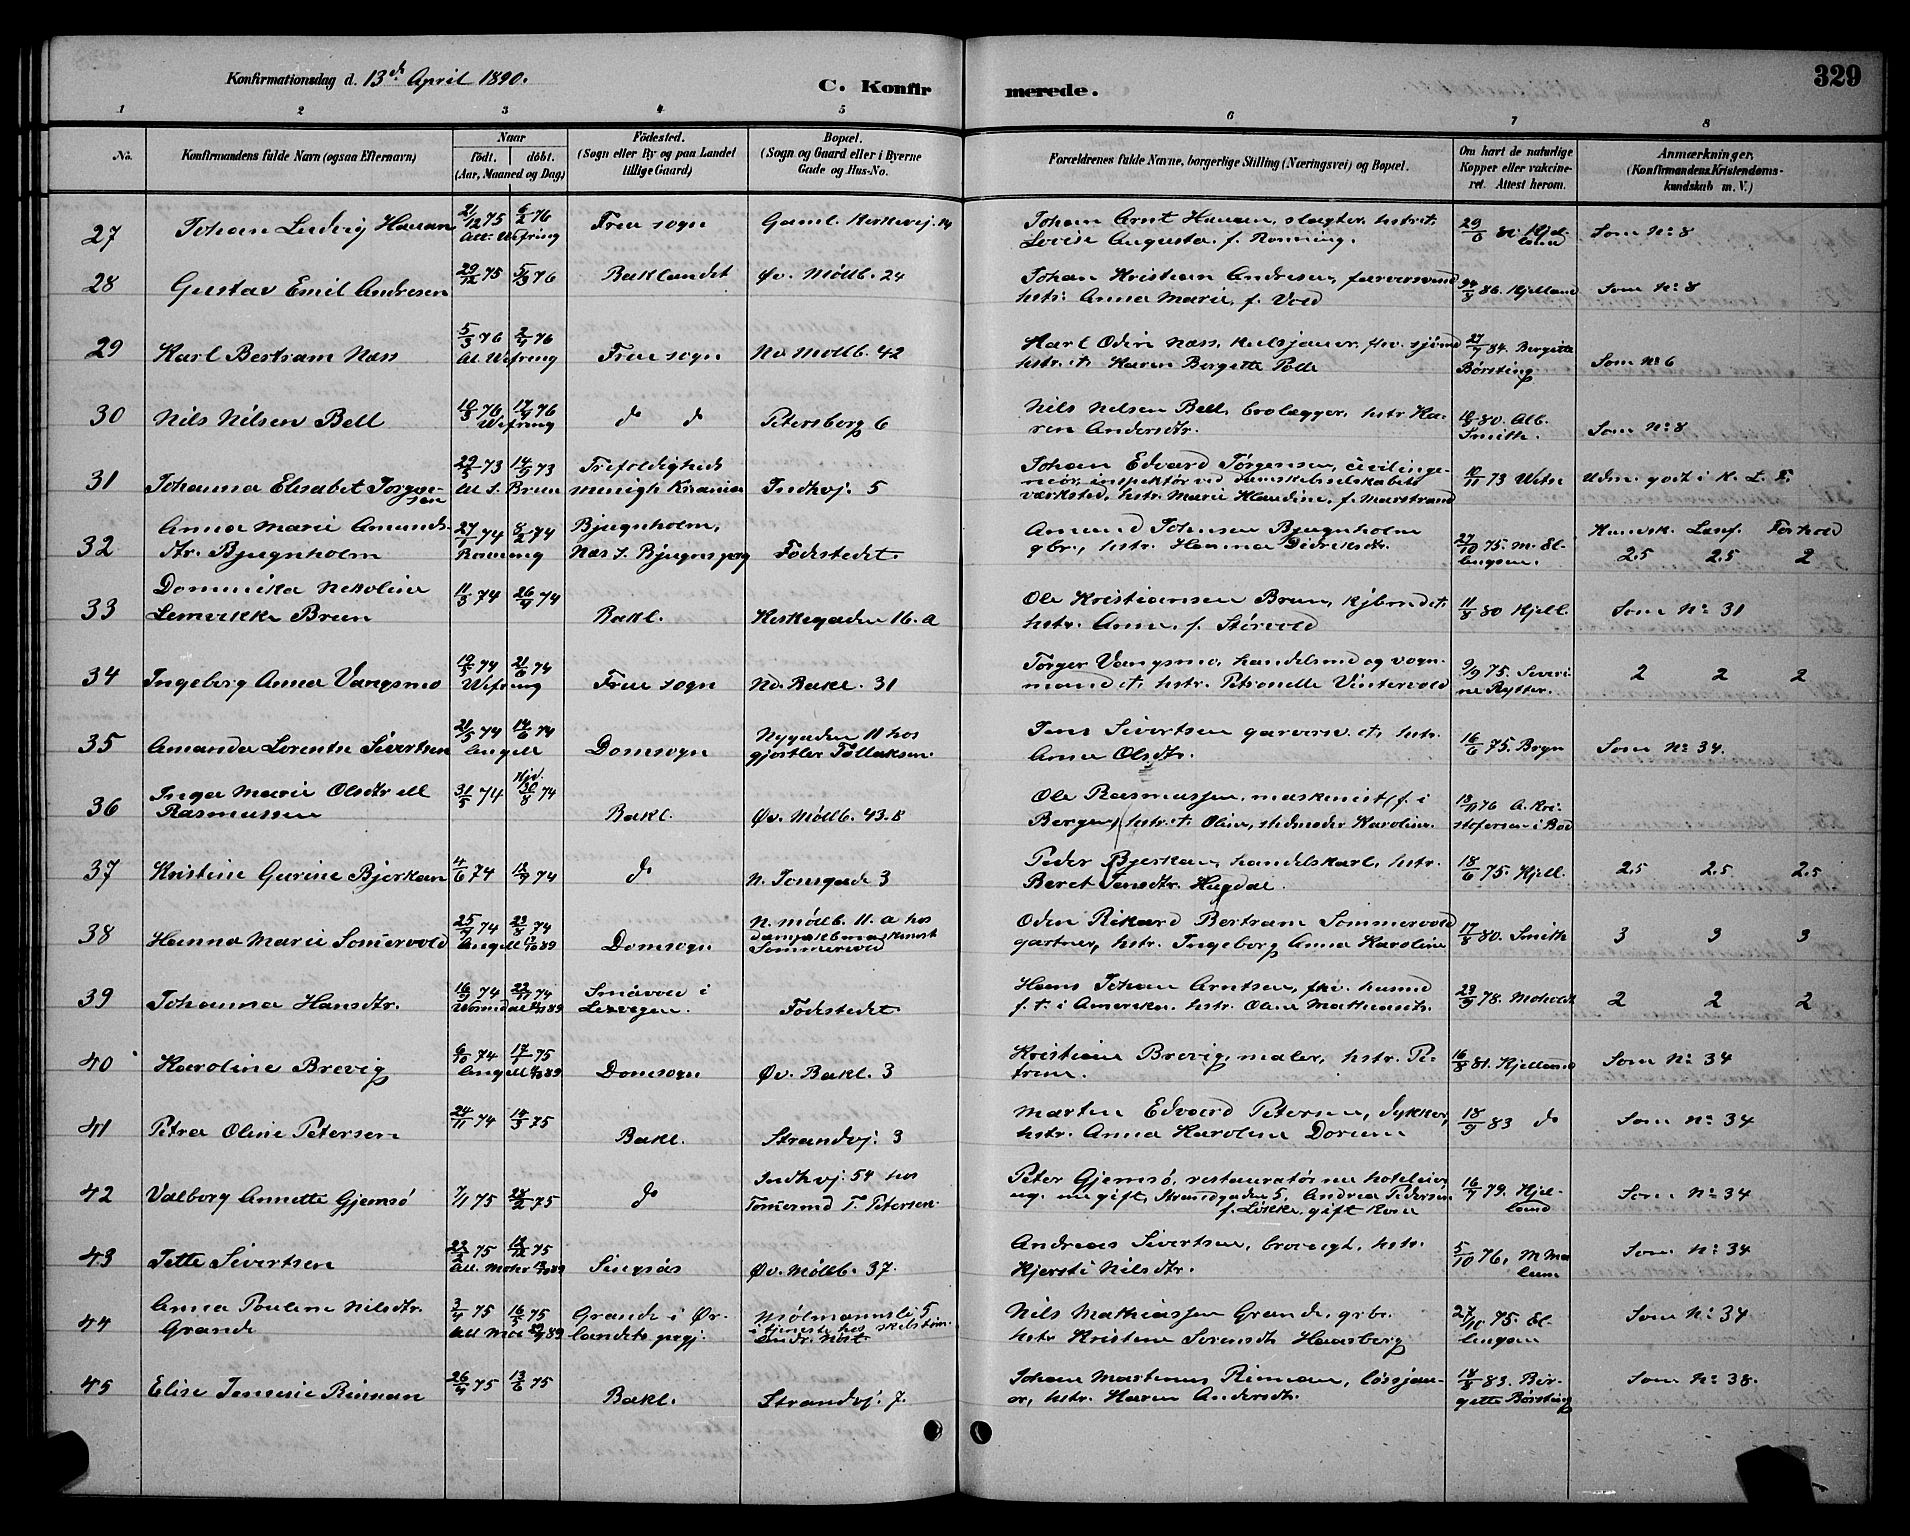 Konfirmationsdag d. 13de April 1890.
C. Konfirmerede.
329
1 2 3 4 5 6 7 8
No.
Konfirmandens fulde Navn (ogsaa Efternavn)
Naar
födt. döbt.
(Aar, Maaned og Dag)
Födested.
(Sogn eller By og paa Landet
tillige Gaard)
Bopæl.
(Sogn og Gaard eller i Byerne
Gade og Hus-No.
Forældrenes fulde Navne, borgerlige Stilling (Næringsvei) og Bopæl.
Om havt de naturlige
Kopper eller vakcine-
ret. Attest herom.
Anmærkninger.
(Konfirmandens Kristendoms-
kundskab m. V.)
27 Johan Ludvig Hansen 21/12 75 6/2 76 Frue sogn Gaml. Kirkevej. 14
Att. Wefring
Johan Arnt Hansen, slagter, hstr. †
Lovise Augusta f. Rønning.
Som No: 8
28 Gustav Emil Andresen 29/12 75 5/3 76 Baklandet Øv. Møllb. 24
Johan Kristian Andresen, farversvend
hstr: Anna Marie, f. Vold
24/8 86. Kjelland Som No: 8
29 Karl Bertram Næss 5/3 76 2/4 76 Frue sogn Nd. Møllb. 42
At. Wefring
Karl Odin Næss, flv. sjømd
hstr. †. Karen Bergitte Polle
27/7 84. Bergitte
Børsting Som No 6
30 Nils Nilsen Bell 10/3 76 17/4 76 do do Petersborg 6
Wefring
Nils Nilsen Bell, brolægger, hstr Ka-
ren Andersdtr.
18/8 80. Alb.
Smith. Som No: 8
31 Johanna Elisabet Jørgen-
sen 29/5 73 14/9 73 Trefoldigheds
menigh. Kr.ania Indhvj. 5
At. S. Brun
Johan Edvard Jørgensen, civilinge-
niør, inspektør ved
værksted, hstr. Marie Klaudine, f. Marstrand
10/11 73 Udm. godt i k. L. F.
32 Anna Marie Amunds-
dtr. Bjugnholm 27/1 74 8/2 74 Bjugnholm,
Næs s. Bjugns pgj Fødestedet
Amund Johnsen Bjugnholm
gbr., hstr. Hanna Didriksdtr.
27/10 75. M. El-
lingsen. Kundsk. Læsf. Forhold
2.5 2.5 2
33 Dominika Nikoline
Lemvikke Brun 11/3 74 26/4 74 Bakl. Kirkegaden 16. a
Ole Kristiansen Brun, kjbmd †,
hstr. Anne, f. Størvold
11/8 80 Kjell. Som No: 31
34 Ingeborg Anna Vangsmo 19/5 74 21/6 74 Frue sogn Nd. Bakl. 31
Wefring
Torger Vangsmo, handelsmd og vogn-
mand †, hstr. Petronelle Vintervold
9/9 75. Severi-
ne Rytter. 2 2 2
35 Amanda Lorentse Sivertsen 21/5 74 14/6 74 Domsogn Nygaden 11 hos
gjørtler Tollaksen.
Angell
Jens Sivertsen garversv. †, hstr.
Anna Olsdtr.
16/6 75. Bryn Som No: 34.
36 Inga Marie Olsdtr ell
Rasmussen 31/5 74 Hjd. 30/8 74 Bakl. Øv. Møllb. 43. B
Ole Rasmussen, maskinist, (f. i
Bergen), hstr. †. Oline, stedmoder Karoline.
13/11 76 A. Kri-
stofersen i Bod
37 Kristine Gurine Bjerkan 4/6 74 13/9 74 do N. Jonsgade 3
Peder Bjerkan, handelskarl, hstr.
Beret Jensdtr. Hugdal.
18/6 75. Kjell. 2.5 2.5 2.5
38 Hanna Marie Somervold 25/7 74 23/8 74 Domsogn N. Møllb. 11. a hos
dampskbmaskinist
Sommervold
Oden Rikard Bertram Sommervold
gartner, hstr. Ingeborg Anna Karoline
17/8 80. Smith 3 3 3
39 Johanna Hansdtr. 16/9 74 22/11 74 Småvold i
Lexvigen. Fødestedet
Hans Johan Arntsen, fhv. husmd
f. t. i Amerika. hstr. Oline Mathiasdtr.
23/9 78. Moholdt 2 2 2
40 Karoline Brevig 6/10 74 17/1 75 Domsogn Øv. Bakl. 3
Kristian Brevig, maler, hstr. Pe-
trine.
16/8 81. Kjelland Som No: 34
41 Petra Oline Petersen 24/11 74 14/3 75 Bakl. Strandvj. 3
Martin Edvard Petersen, dykker,
hstr. Anna Karoline Dorum
18/9 83 do Som No: 34
42 Valborg Annette Gjemsø 7/1 75 28/2 75 do Indhvj. 54 hos
Tømermd T. Petersen.
Peter Gjemsø, restauratør nu hoteleier
ug. nu gift, Strandgaden 5, Andrea Pedersen
f. Løkke, gift
16/7 79. Kjel-
land Som No: 34
43 Jette Sivertsen 22/2 75 Singsås Øv. Møllb. 37.
Andreas Sivertsen, brovagt, hstr.
Kjersti Nilsdtr.
5/10 76, M. Mæ-
lum Som No: 34
44 Anna Pauline Nilsdtr.
Grande 3/4 75 16/5 75 Grande i Ør-
landets pregj: Mølmannsli 5
i tjeneste hos
Nils Mathiassen Grande, grbr.
hstr Kristine Sorensdtr Haarberg
27/10 75. El-
lingsen Som No: 34
45 Elise Jensine Riiman 26/4 75 13/6 75 Bakl. Strandvj. 7.
Johan Martinus Riiman, løssjau-
er, hstr. Karen Andersdtr.
18/8 83. Ber-
gitte Børsting Som No: 38.